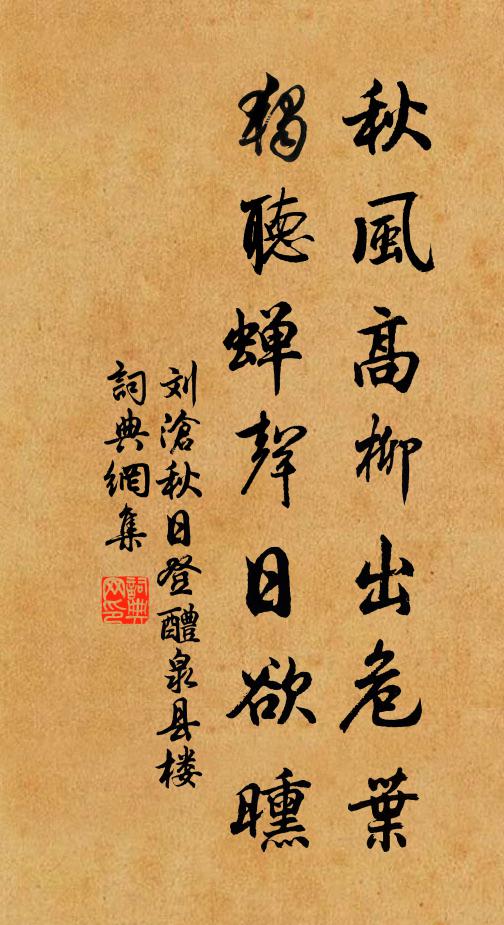 秋風高柳出危葉
獨聽蟬聲日欲曛
刘滄秋日登醴泉县楼
詞典網集
詞典網印